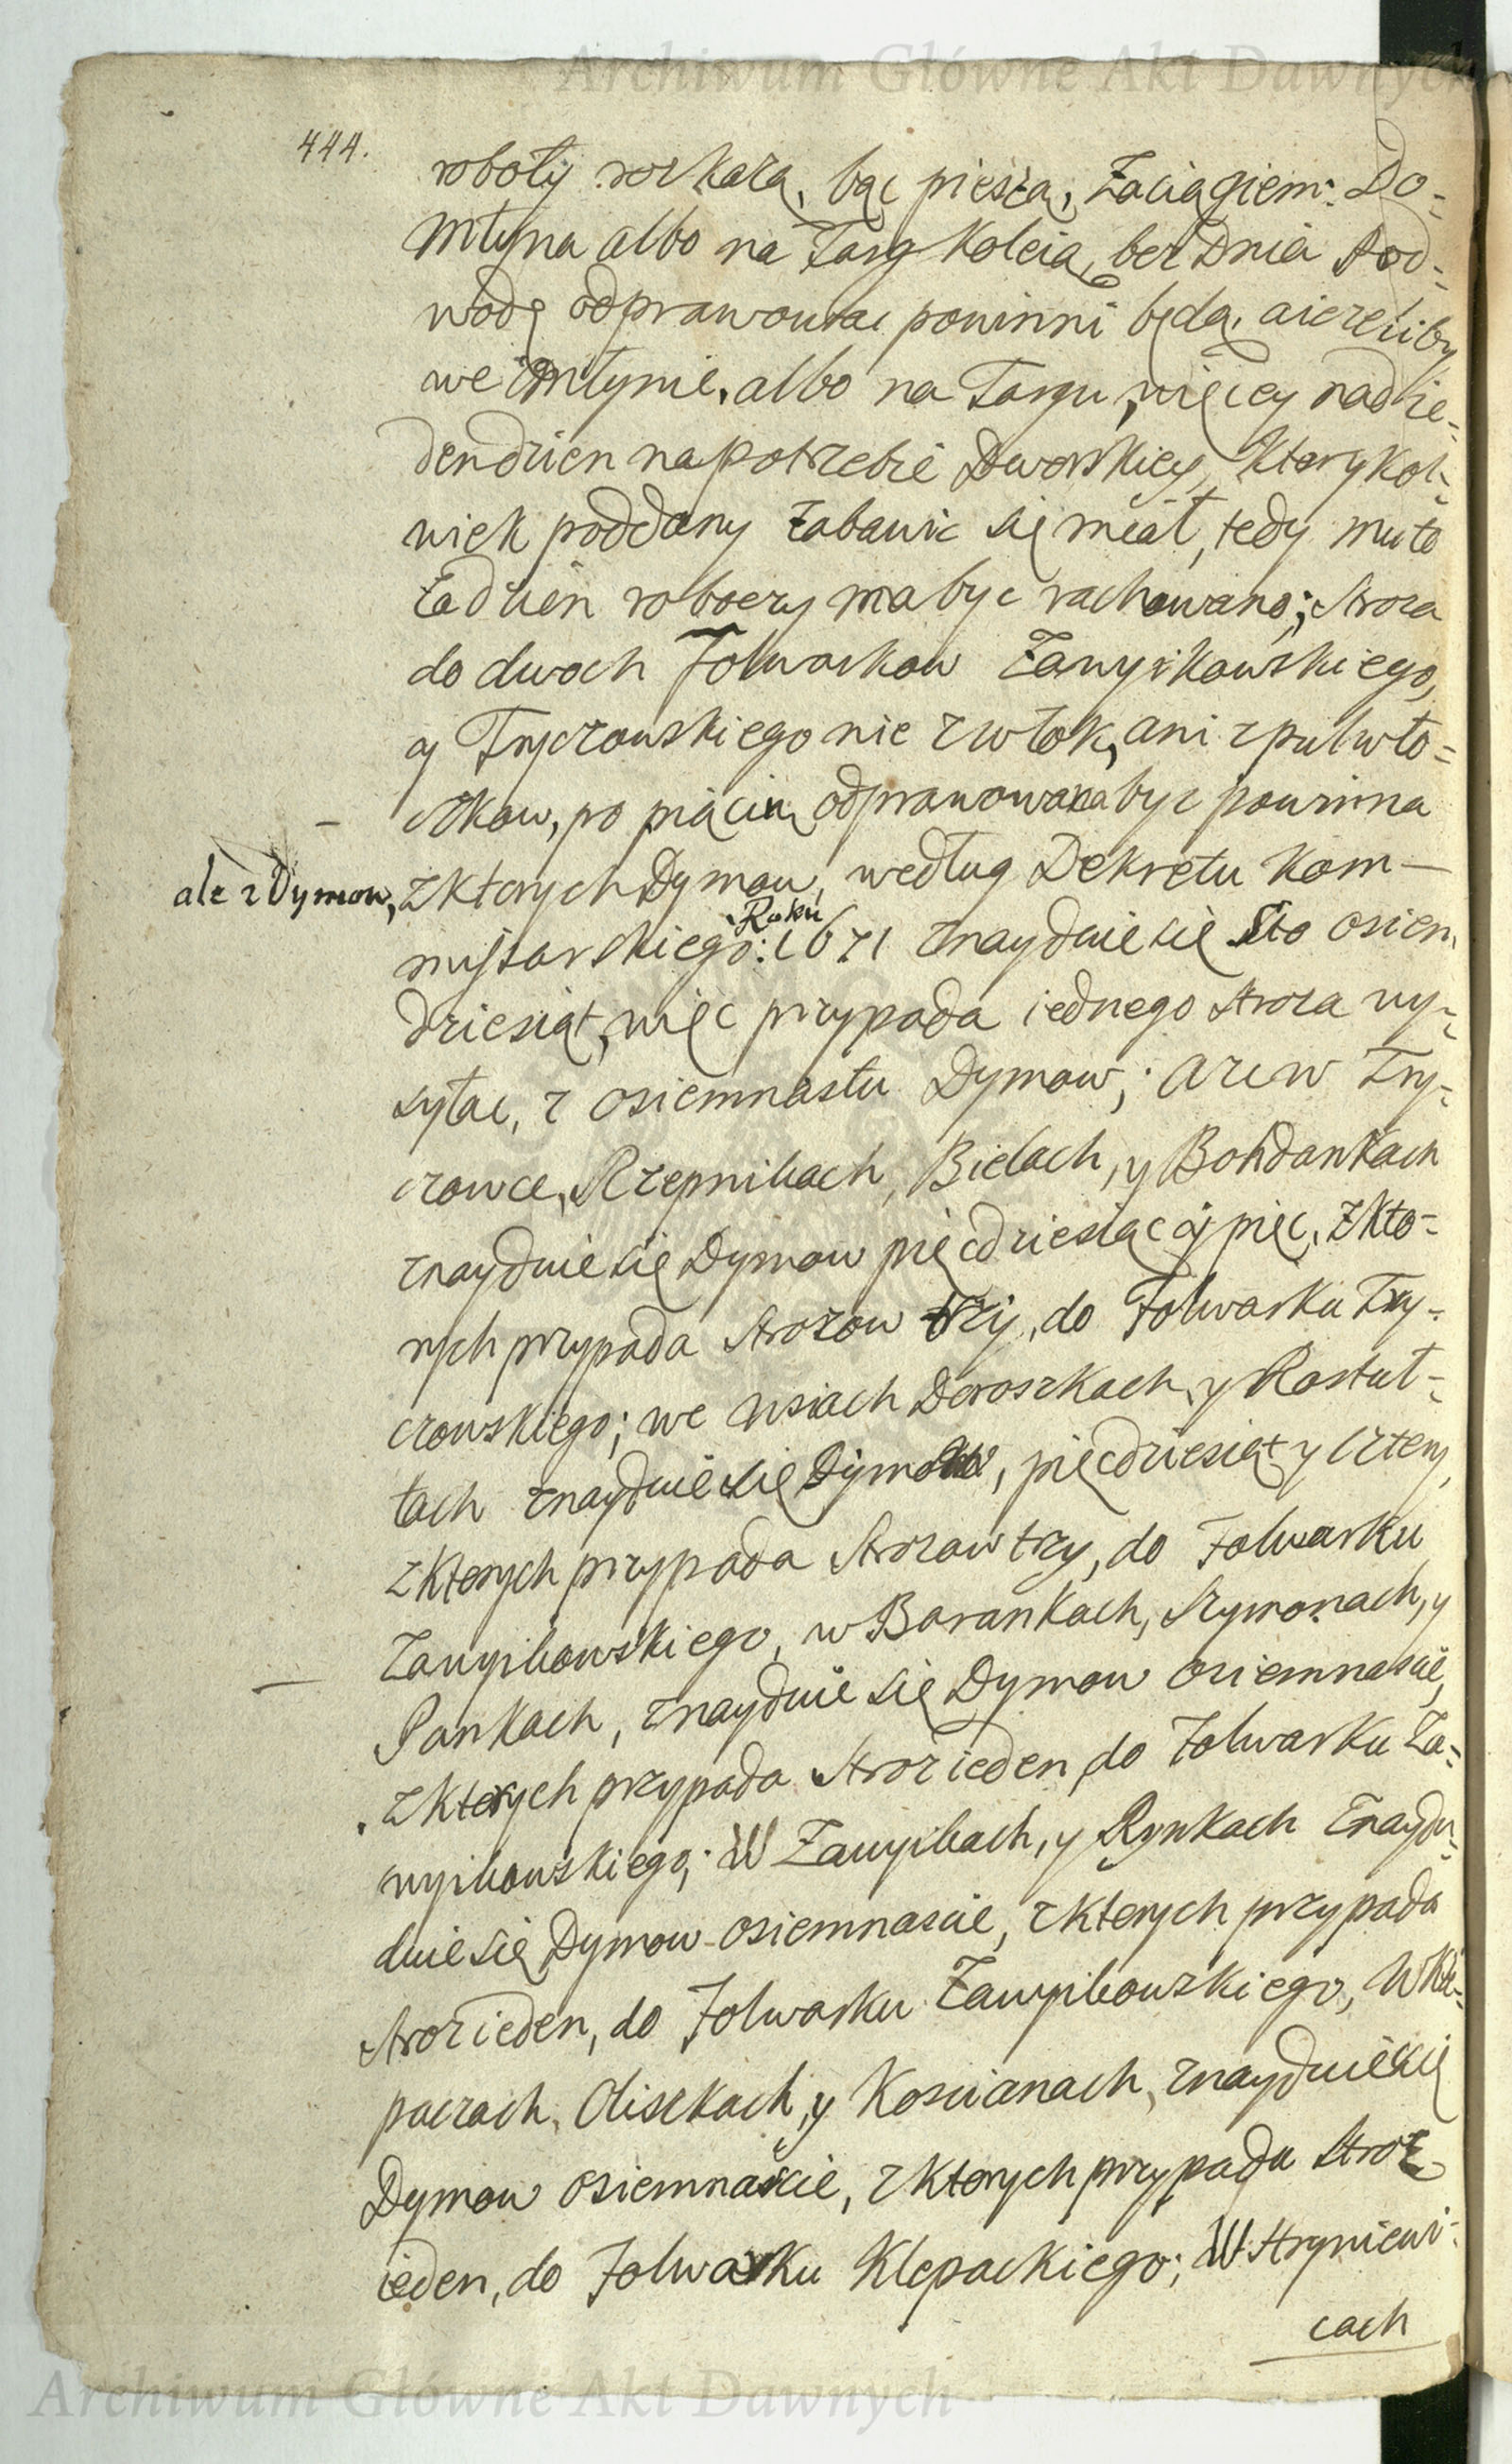 Archiwum Główne Akt Dawnych
444.
roboty roskażą, bąc pieszą, Zaciągiem: Do-
Młyna albo na Targ Koleią, bez Dnia Pod-
wodę odprawowac powinni będą, a iezeliby
we Młynie, albo na Targu, więcey nad ie-
den dzien na potrzebie Dworskiey, Ktorykol-
wiek poddany zabawic się miał, tedy mu to
za dzien roboczy ma byc rachowano; Stroza
do dwoch Folwarkow Zawykowskiego,
y Tryczowskiego nie z włok, ani z pułwło-
czkow, po piąciu odprawowana byc powinna
ale z Dymow, z ktorych Dymow, według Dekretu Kom-
missarskiego: Roku 1671 znayduie się Sto osiem
dziesiąt, więc przypada iednego stroza wy-
syłac, z osiemnastu Dymow; A ze w Try-
czowce, Rzepnikach, Bielach, y Bohdankach
znayduie się Dymow pięcdziesiąc y pięc, z kto-
rych przypada Strozow trzy, do Folwarku Try-
czowskiego; we wsiach Doroszkach, y Rostoł-
tach znayduie się Dymow, pięcdziesiąt y cztery,
z ktorych przypada Strozow trzy, do Folwarku
Zawykowskiego, w Barankach, Szymonach, y
Pankach, znayduie się Dymow osiemnascie,
z ktorych przypada Stroz ieden do Folwarku Za-
wykowskiego; W Zawykach, y Rynkach Znaydu-
duie się Dymow osiemnascie, z ktorych przypada
Stroz ieden, do Folwarku Zawykowskiego, W Kle-
paczach, Oliszkach, y Koscianach, znayduie się
Dymow osiemnascie, z ktorych przypada Stroz
ieden, do Folwarku Klepackiego; W Hryniewi-
cach
Archiwum Główne Akt Dawnych